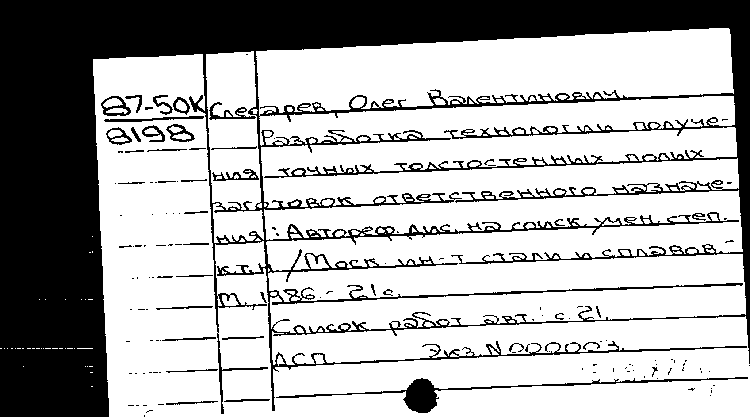 87-50К Слесарев, Олег Валентинович.
8198 Разработка технологии получе-
ния точных толстостенных полых
заготовок ответственного назначе-
ния : Автореф. дис. на соиск. учен. степ.
к.т.н. / Моск. ин-т стали и сплавов. -
М., 1986. - 21 с.
Список работ авт.: с 21.
ДСП Экз. N 000003.